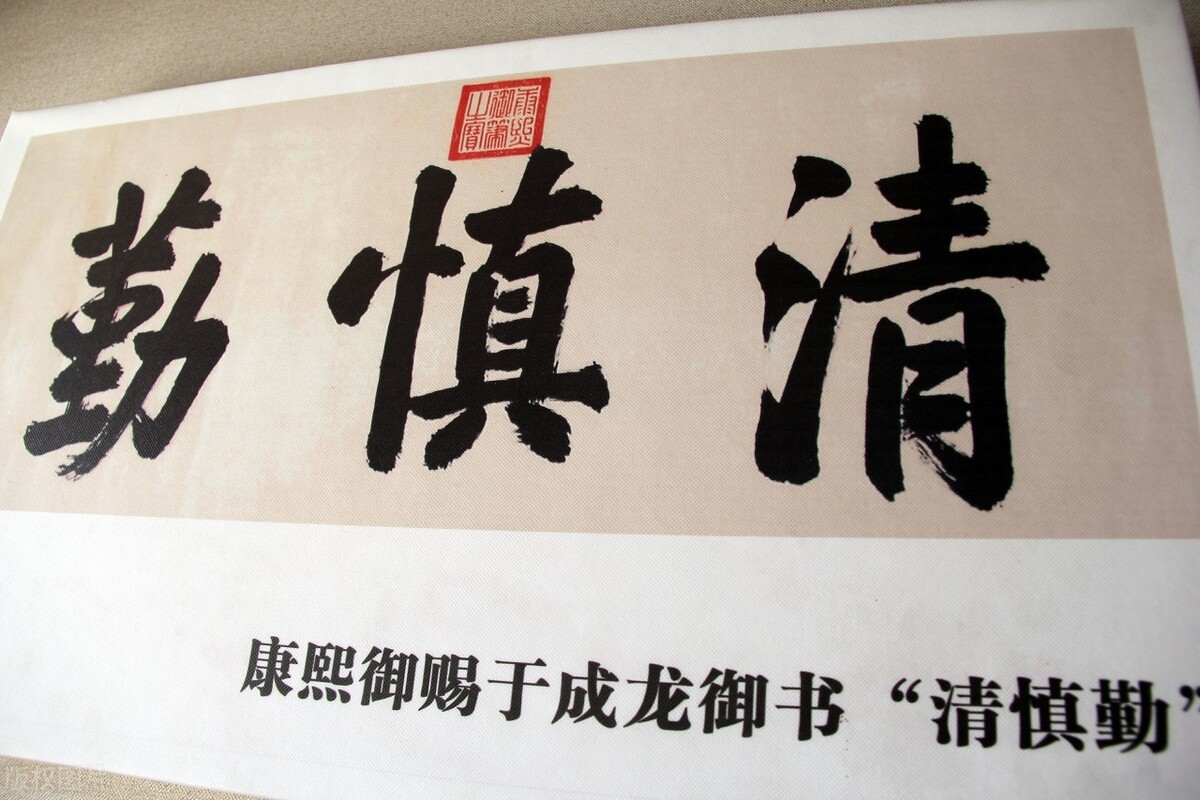 康熙
御筆
之寶
清慎勤
康熙御赐于成龙御书“清慎勤”